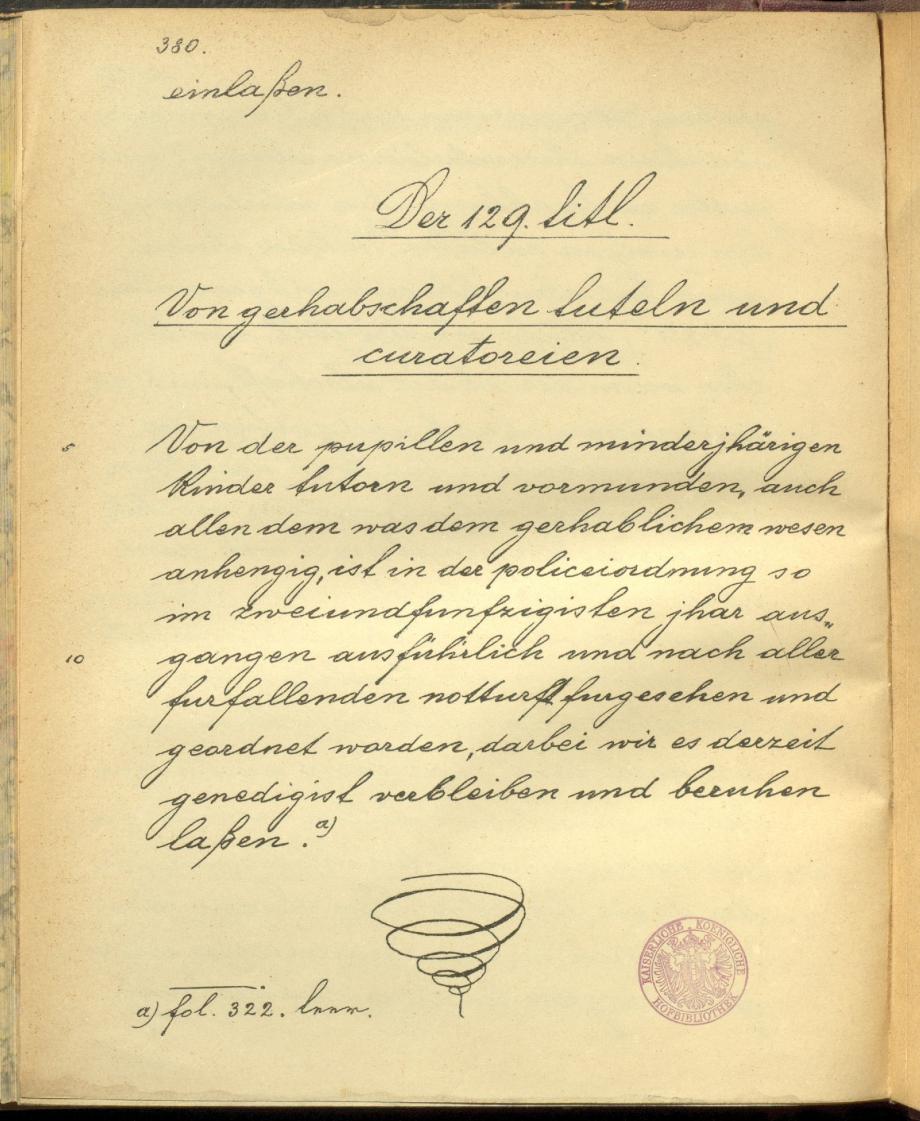 380.
einlaßen.
Der 129. titl.
Von gerhabschaften tuteln und
curatoreien.
5 Von der pupillen und minderjhärigen
kinder tutorn und vormunden, auch
allen dem was dem gerhablichem wesen
anhengig, ist in der policeiordnung so
im zweiundfunfzigisten jhar aus„
10 gangen ausführlich und nach aller
furfallenden notturft furgesehen und
geordnet worden, darbei wir es derzeit
genedigist verbleiben und beruhen
laßen. a)
a) fol. 322. leer.
KAISERLICHE KOENIGLICHE
HOFBIBLIOTHEK